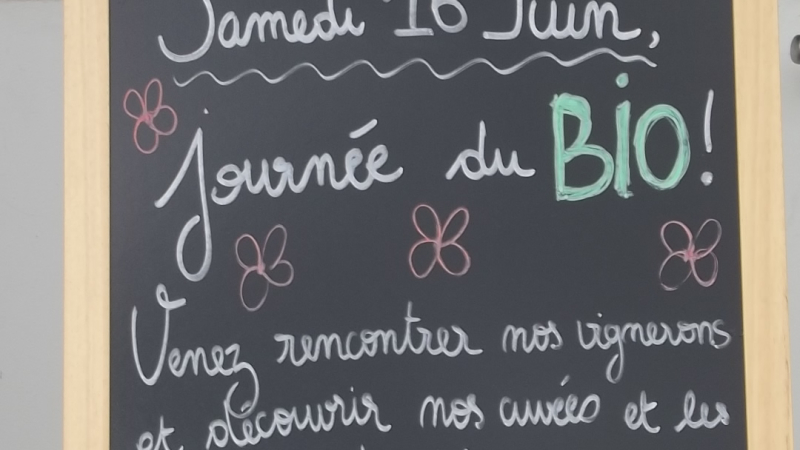 Samedi 16 Juin,
journée du BiO!
Venez rencontrer nos vignerons
et découvrir nos cuvées et les